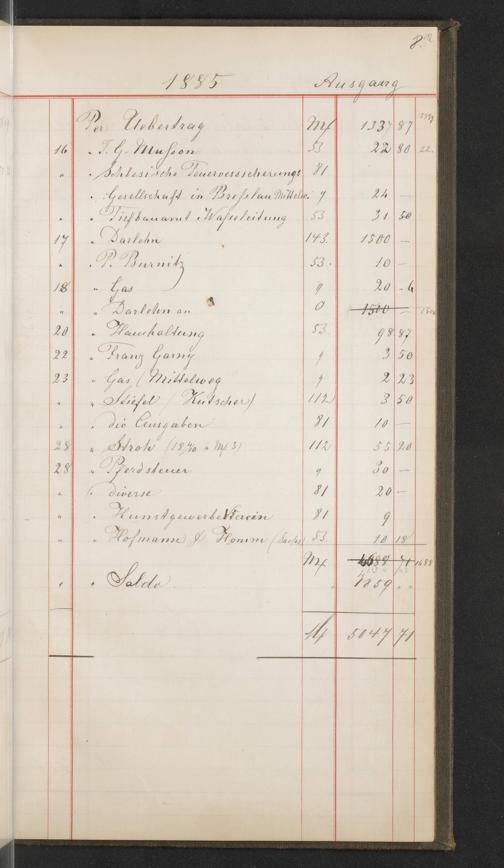 82
1885 Ausgang
Per Uebertrag Mf 1337 87
16 " T. G. Musson 53 22 80 22
" " Schlesische Feuerversicherungs 81
" Gesellschaft in Breslau Mittelw. 9 24 —
" " Tiefbauamt Wasserleitung 53 31 50
17 " Darlehn 143. 1500 —
" " P. Burnitz 53. 10 —
18 " Gas 9 20
" " Darlehn an 0 1500 —
20 " Haushaltung 53. 98 87
22 " Franz Garny 9 3 50
23 " Gas (Mittelweg 9 2 23
" " Stiefel (Kutscher) 112 3 50
" " div Ausgaben 81 10 —
28 " Stroh 112 55 20
28 " Pferdsteuer 9 30 —
" " diverse 81 20 —
" " Kunstgewerbe Verein 81 9
" " Hofmann & 53 10 18
Mf 71
" " Saldo
Mf 5047 71